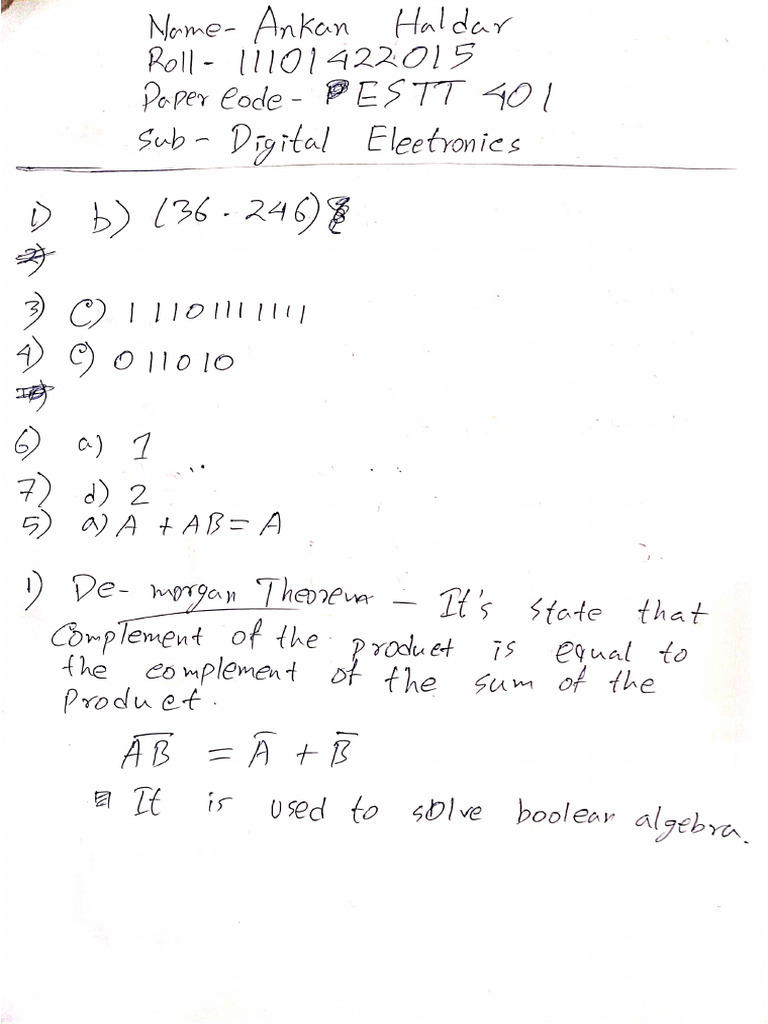 Name- Ankan Haldar
Roll- 11101422015
Paper Code - PESTT 401
Sub - Digital Electronics
1) b) (36.246)
2)
3) C) 11110111111
4) C) 011010
6) a) 1
7) d) 2
5) a) A + AB = A
1) De-morgan Theorem - It's state that
Complement of the product is equal to
the complement of the sum of the
Product.
A̅B̅ = A̅ + B̅
It is used to solve boolean algebra.